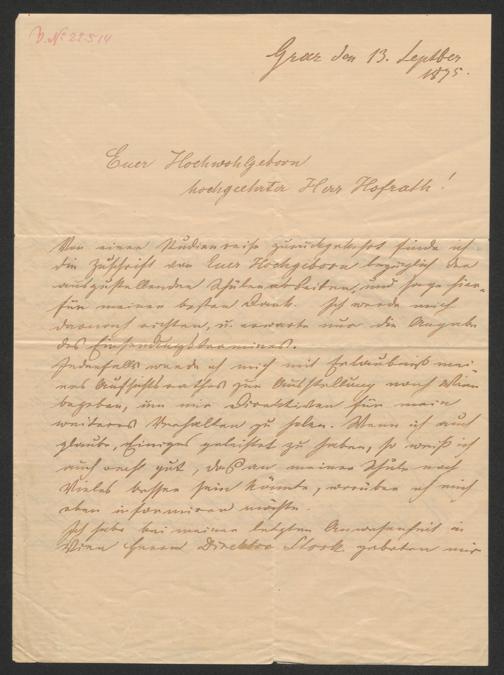 V. N° 22514
Graz den 13. Septber
1895.
Euer Hochwohlgeborn
hochgeehrter Herr Hofrath!
Von einer Studienreise zurückgekehrt finde ich
die Zuschrift von Euer Hochgeborn bezüglich der
auszustellenden Schülerarbeiten, und sage hie-
für meinen besten Dank. Ich werde mich
darnach richten, u. erwarte nur die Angabe
des Einsendungstermines.
Jedenfalls werde ich mich mit Erlaubniß mei-
nes Aufsichtsrathes zur Ausstellung nach Wien
begeben, um mir Direktiven für mein
weiteres Verhalten zu holen. Wenn ich auch
glaube, Einiges geleistet zu haben, so weiß ich
auch recht gut, daß an meiner Schule noch
Vieles besser sein könnte, worüber ich mich
eben informiren möchte.
Ich habe bei meiner letzten Anwesenheit in
Wien Herrn Direktor Storck gebeten mir